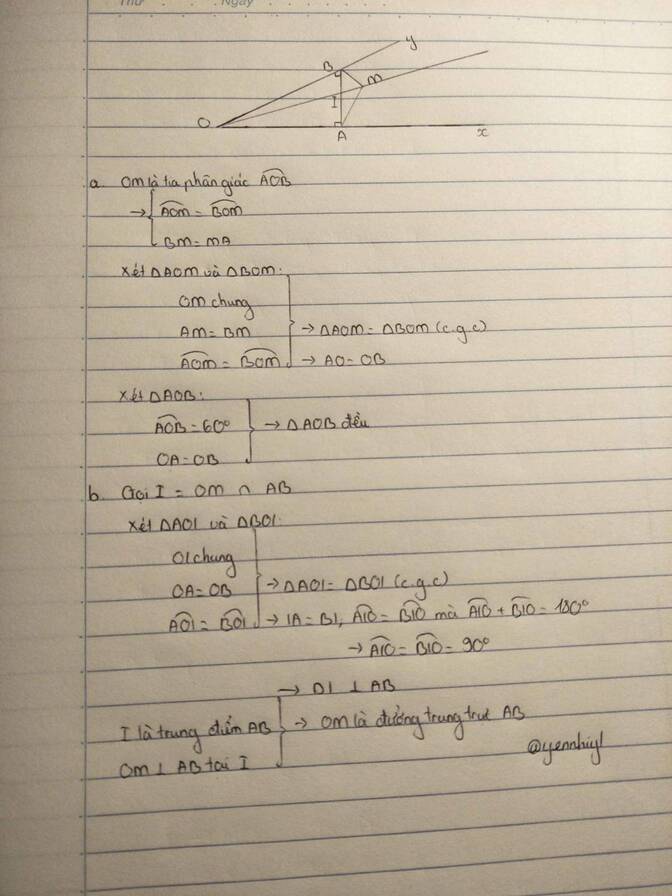 Thứ Ngày
y
B
M
I
O
A
x
a. OM là tia phân giác AOB
→ AOM = BOM
BM = MA
Xét ΔAOM và ΔBOM:
OM chung
AM = BM → ΔAOM = ΔBOM (c.g.c)
AOM = BOM → AO = OB
Xét ΔAOB:
AOB = 60° → ΔAOB đều
OA = OB
b. Gọi I = OM ∩ AB
Xét ΔAOI và ΔBOI:
OI chung
OA = OB → ΔAOI = ΔBOI (c.g.c)
AOI = BOI → IA = BI, AIO = BIO mà AIO + BIO = 180°
→ AIO = BIO = 90°
→ OI ⊥ AB
I là trung điểm AB → OM là đường trung trực AB
OM ⊥ AB tại I
@yennhiyl